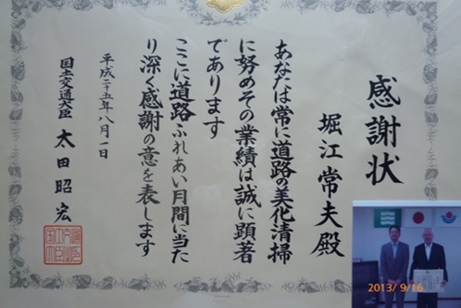 感謝状
堀江常夫殿
あなたは常に道路の美化清掃
に努めその業績は誠に顕著
であります
ここに道路ふれあい月間に当た
り深く感謝の意を表します
平成二十五年八月一日
国土交通大臣 太田昭宏
2013/ 9/16